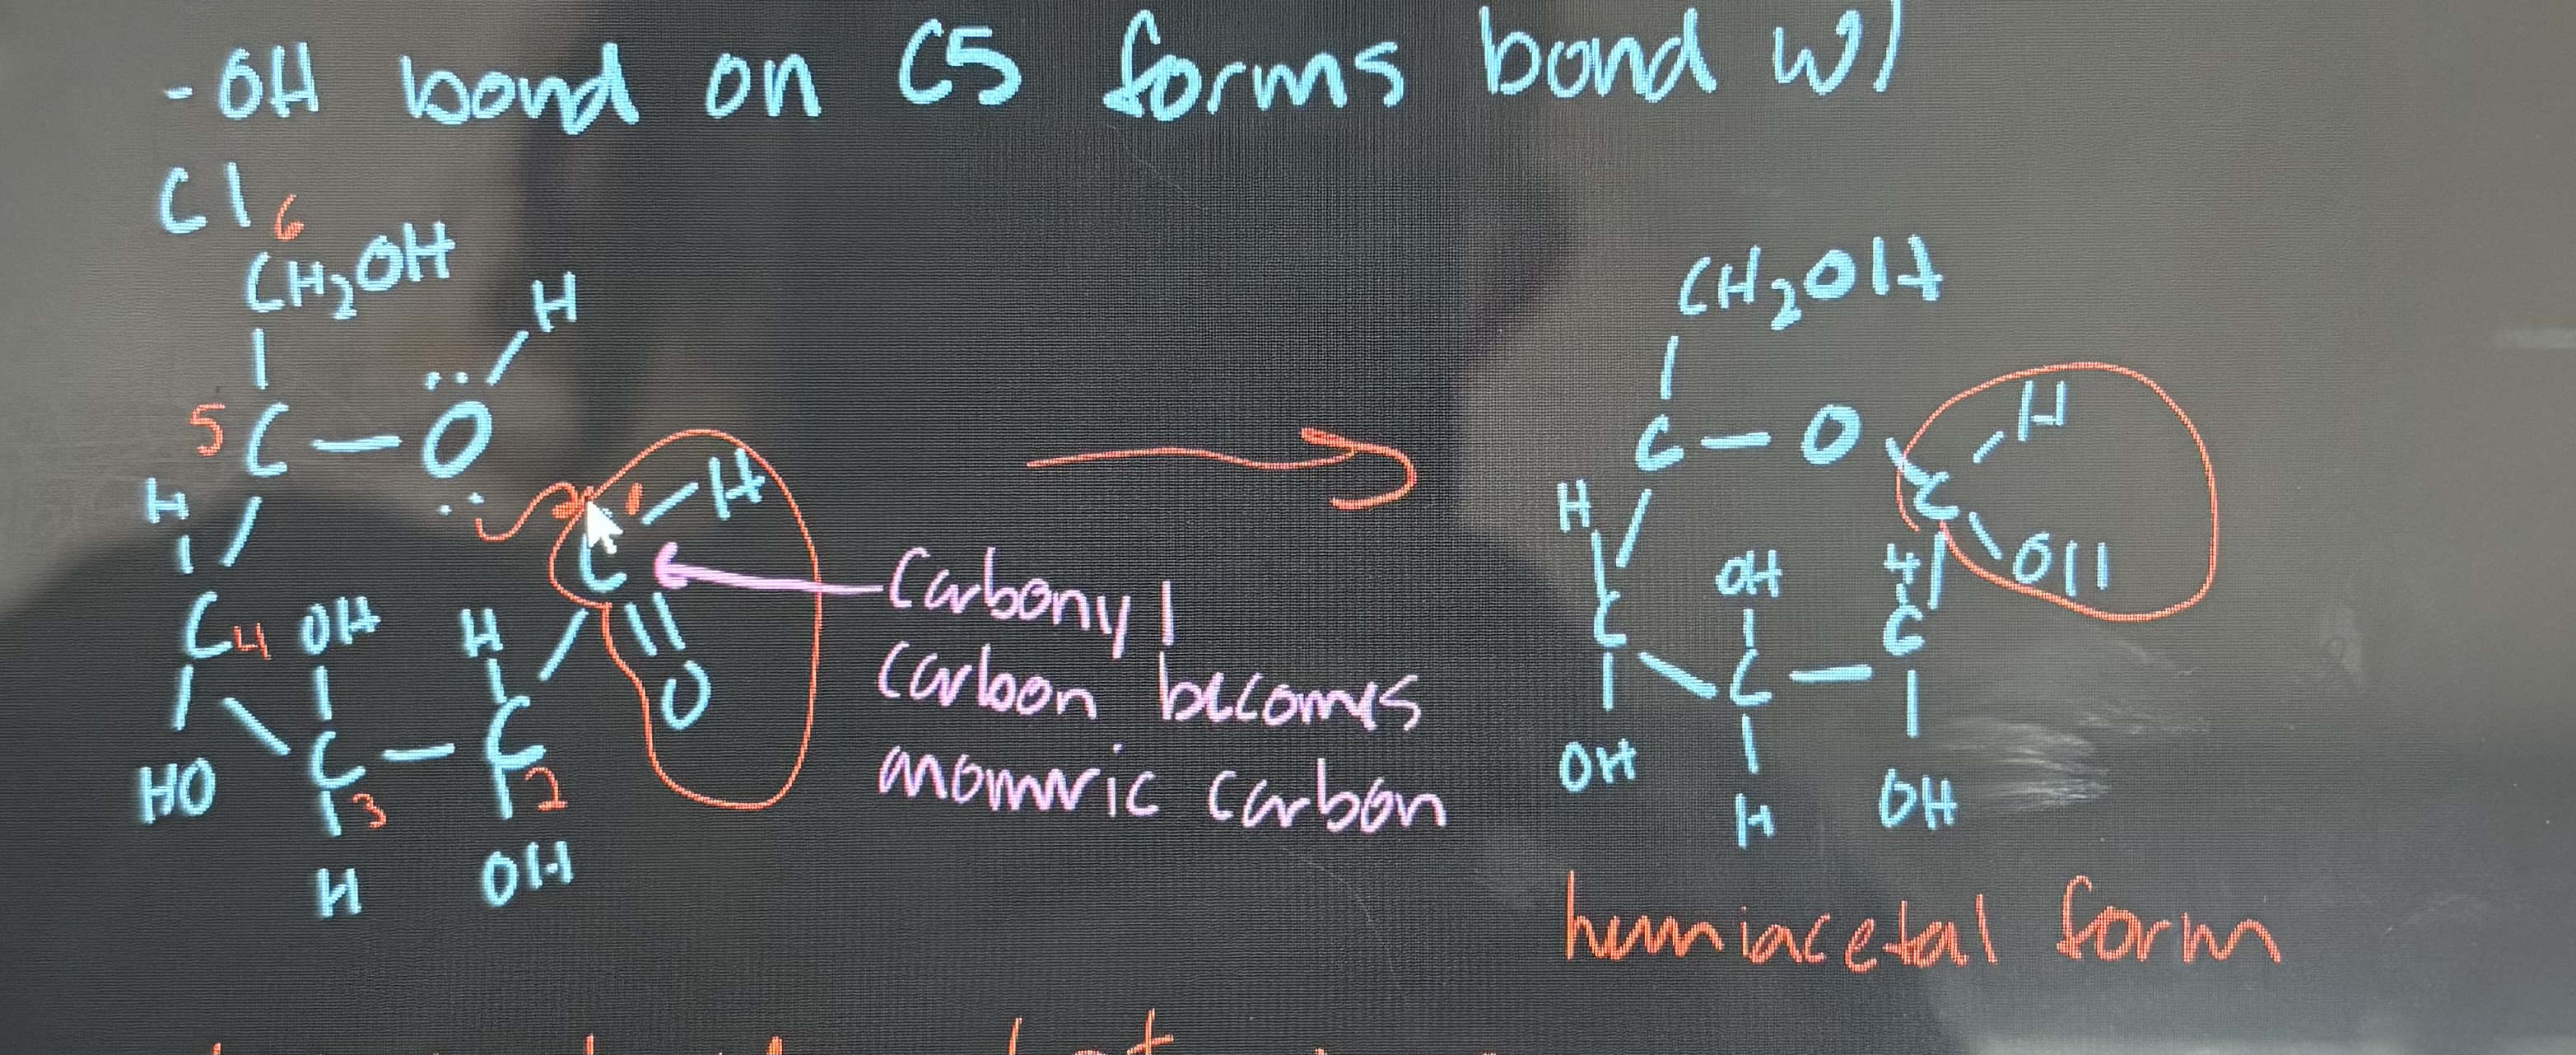 -OH bond on C5 forms bond w/
C1
6
CH2OH
H
5 C - O
H
1 - H
C
C 4 OH H
O
HO C - C
3 2
H OH
Carbonyl
carbon becomes
anomeric carbon
CH2OH
C - O
H
H C
OH H OH
C C
C -
OH H OH
hemiacetal form